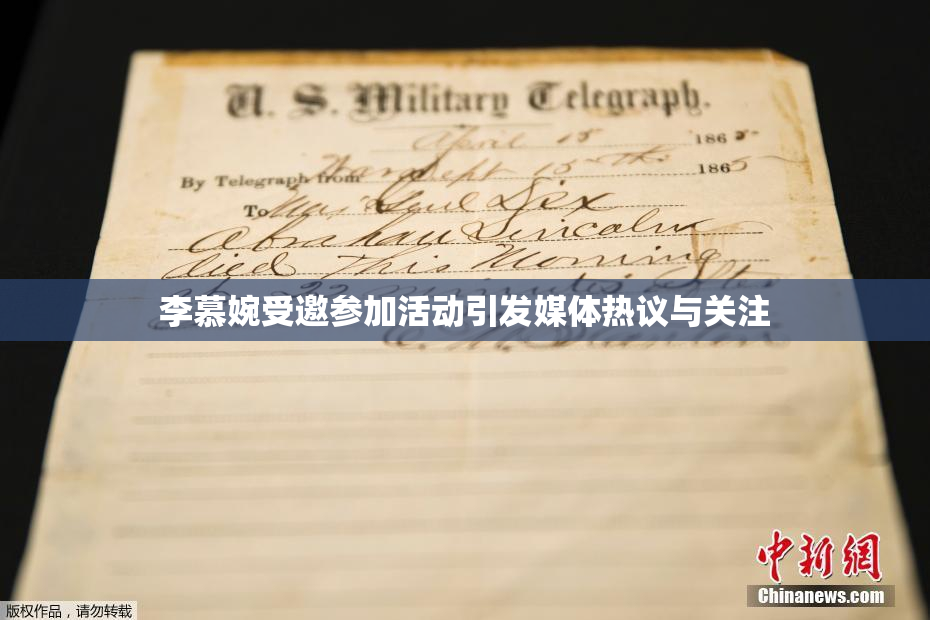 U. S. Military Telegraph.
April 15 1865
By Telegraph from War Dept 15th 1865
To Maj Genl Dix
Abraham Lincoln
died This Morning
at 22 minutes after
李慕婉受邀参加活动引发媒体热议与关注
E. M. Stanton
中新網
Chinanews.com
版权作品，请勿转载